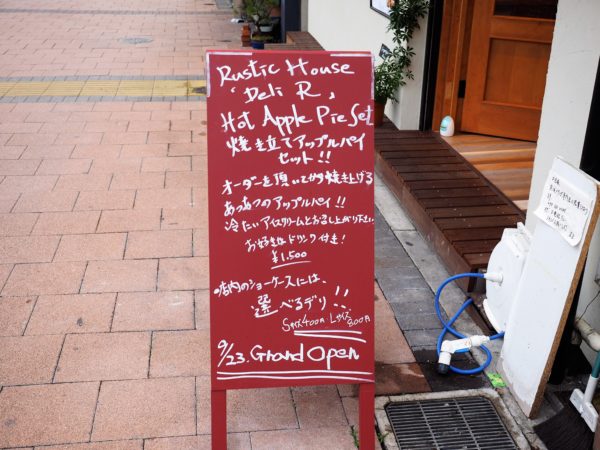 Rustic House
'Deli R,
Hot Apple Pie Set
焼き立てアップルパイ
セット!!
オーダーを頂いてから焼き上げる
あつあつのアップルパイ!!
冷たいアイスクリームとお召し上り下さい
お好きなドリンク付き!
¥1,500
店内のショーケースには、
選べるデリ!!
Sサイズ400円 Lサイズ800円
9/23. Grand Open